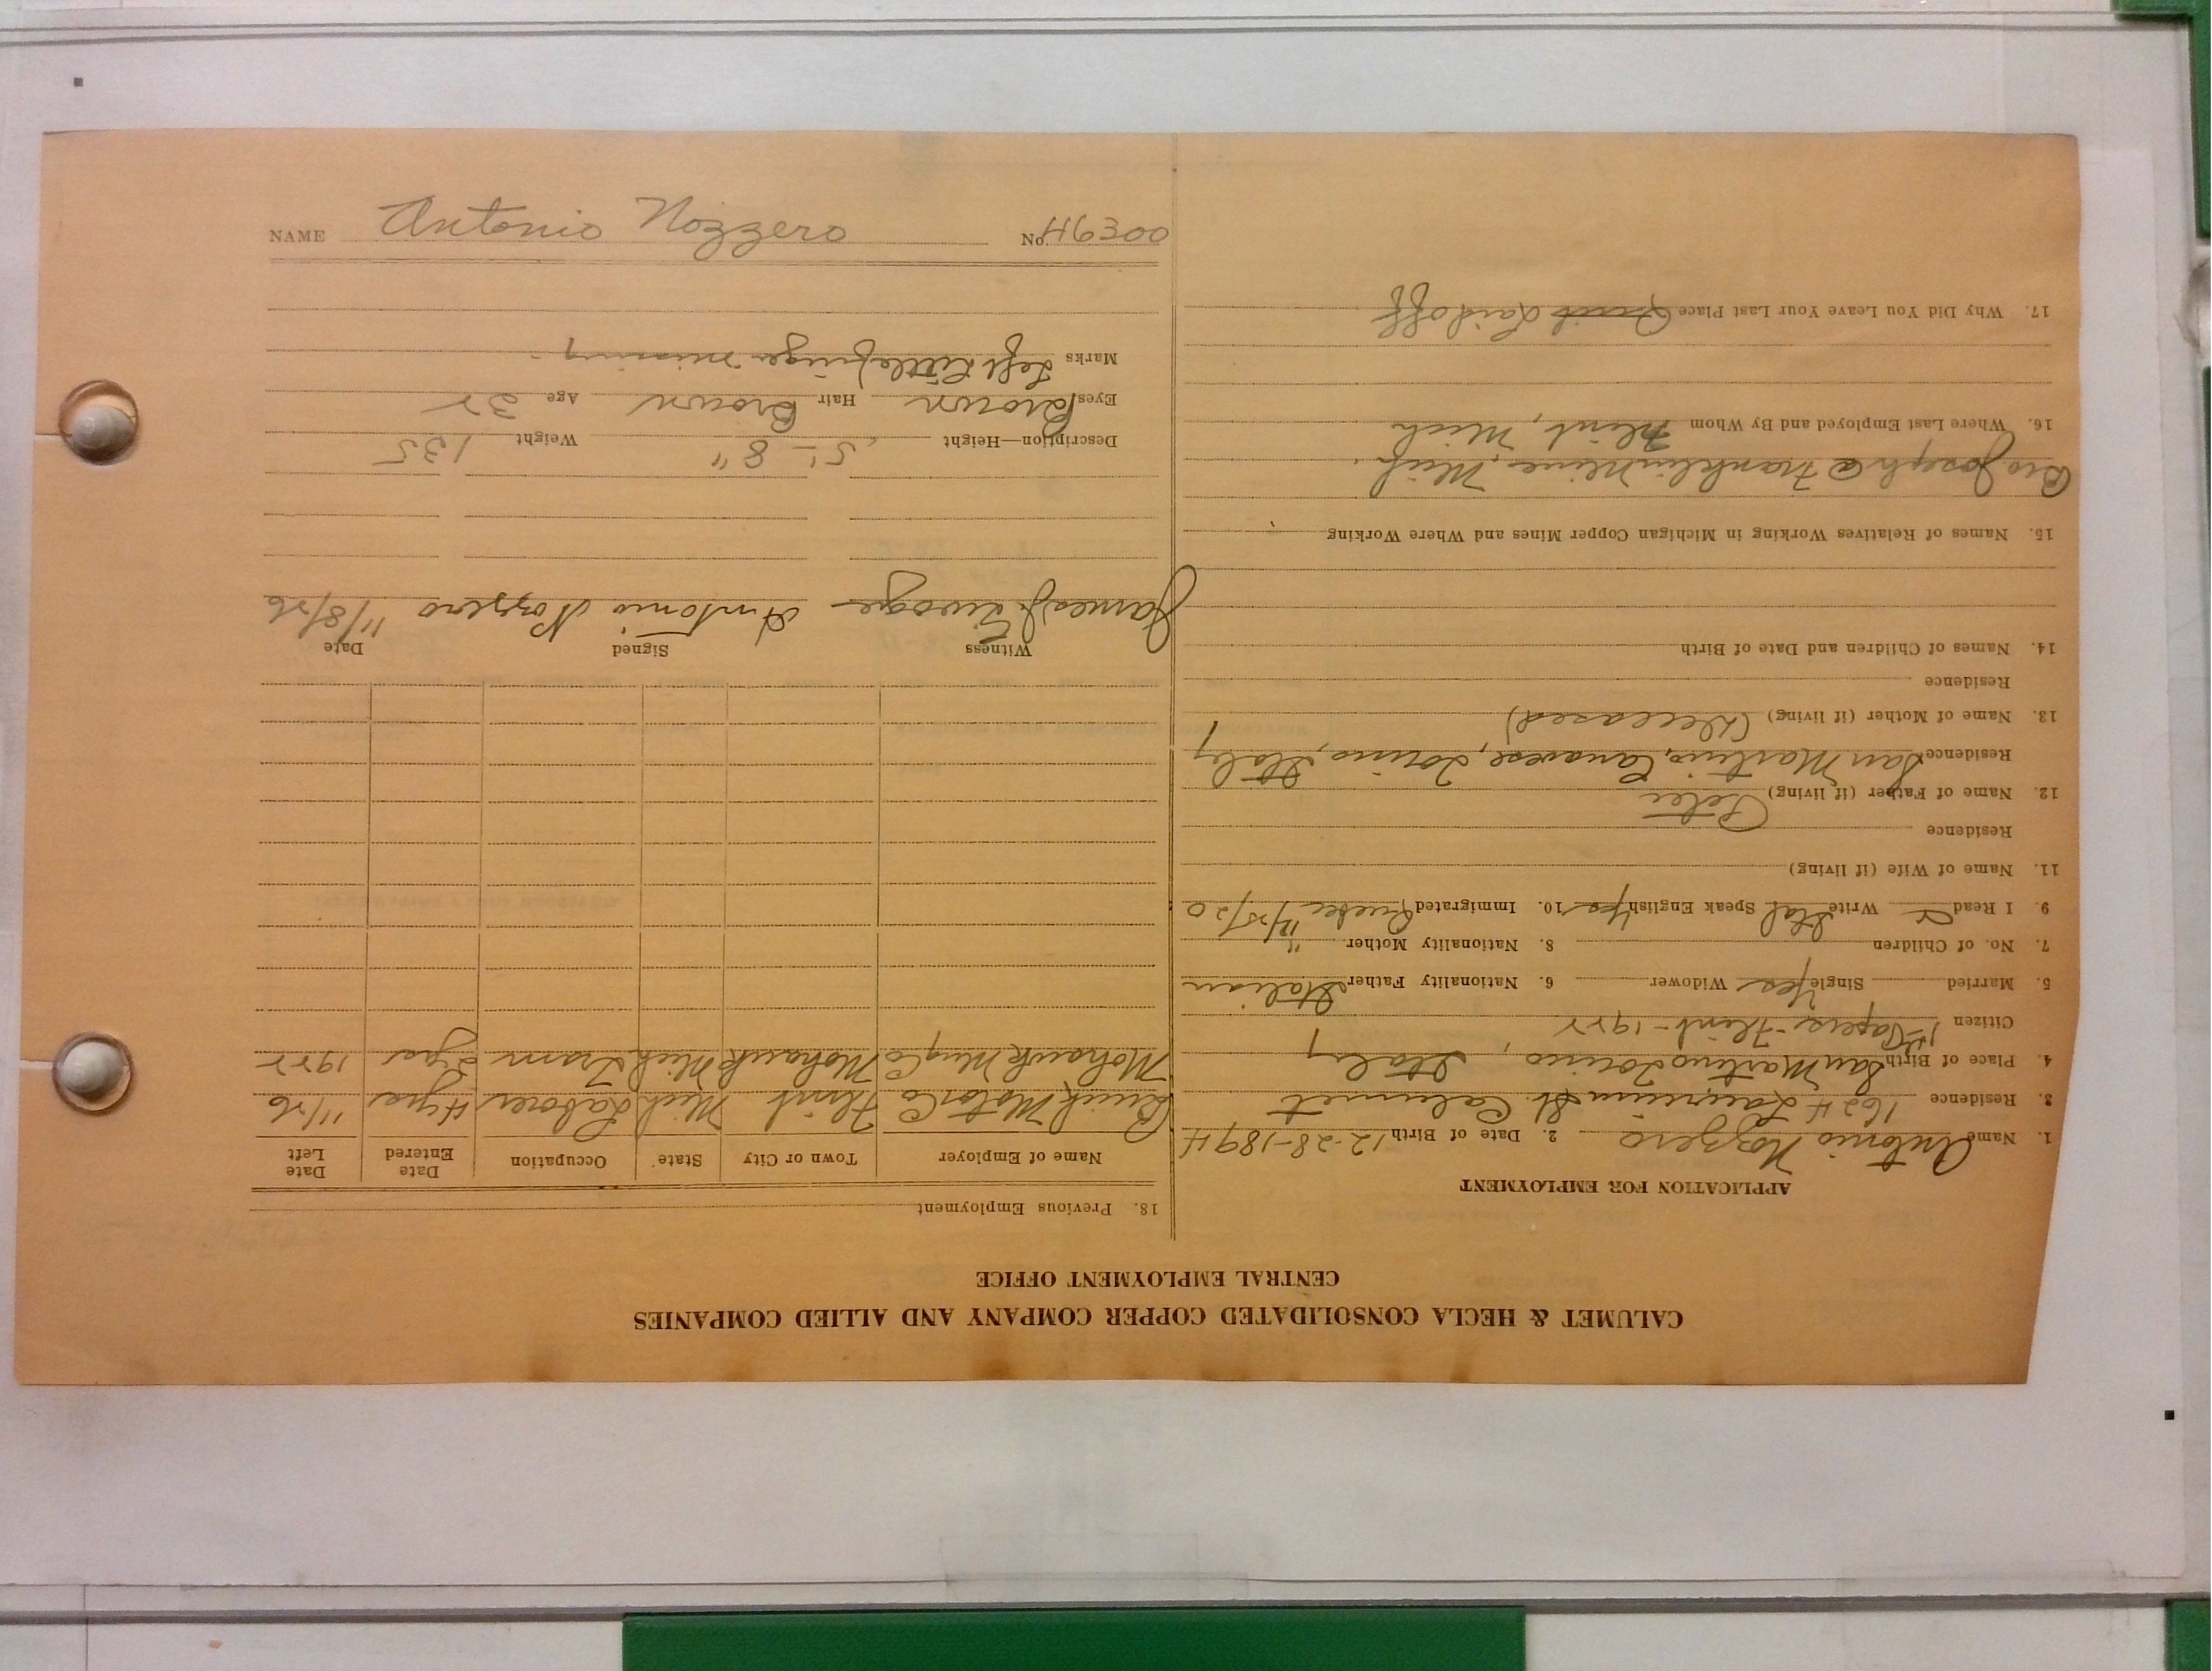 CALUMET & HECLA CONSOLIDATED COPPER COMPANY AND ALLIED COMPANIES
CENTRAL EMPLOYMENT OFFICE
APPLICATION FOR EMPLOYMENT
1. Name Antonio Nozzero 2. Date of Birth 12-28-1894
3. Residence 1624 Laurium St Calumet
4. Place of Birth San Martino Torino, Italy
Citizen 1st Papers-Flint-1922
5. Married Single Yes Widower 6. Nationality Father Italian
7. No. of Children 8. Nationality Mother "
9. I Read & Write Ital Speak English Yes 10. Immigrated Quebec
11. Name of Wife (if living)
Residence
12. Name of Father (if living) Peter
Residence San Martino, Canavese, Torino, Italy
13. Name of Mother (if living) (Deceased)
Residence
14. Names of Children and Date of Birth
15. Names of Relatives Working in Michigan Copper Mines and Where Working
Bro Joseph @ Franklin Mine, Mich.
16. Where Last Employed and By Whom Flint, Mich
17. Why Did You Leave Your Last Place Quit Laid off
18. Previous Employment
Name of Employer Town or City State Occupation Date Entered Date Left
Buick Motor Co Flint Mich Laborer 4yrs 11/26
Mohawk Mng Co Mohawk Mich Tram 2yrs 1922
Witness Signed Date
James J. Antonio Nozzero 11/8/26
Description—Height 5'-8" Weight 135
Eyes Brown Hair Brown Age 32
Marks Left Little finger missing
NAME Antonio Nozzero No. 46300